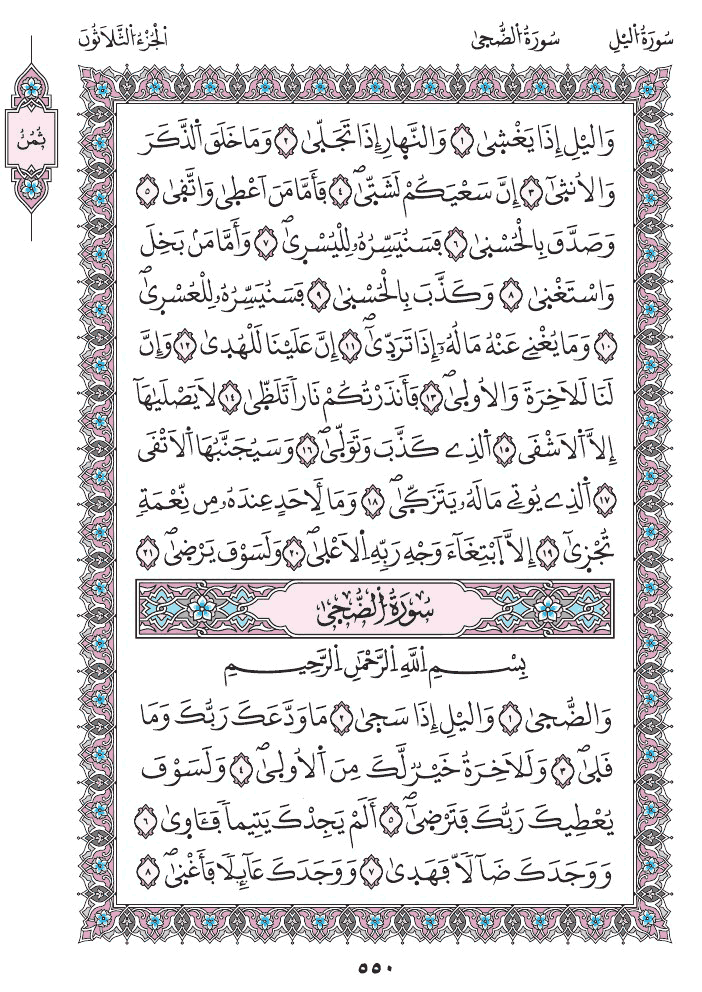 سُورَةُ اليْلِ
سُورَةُ الضُّحىٰ
الْجُزْءُ الثَّلَاثُونَ
ثُمُنُ
وَاليْلِ إِذَا يَغْشىٰ ١ وَالنَّهارِ إِذَا تَجَلّىٰ ٢ وَمَا خَلَقَ الذَّكَرَ
وَالُانثىٰ ٣ إِنَّ سَعْيَكُمْ لَشَتّىٰ ٤ فَأَمَّا مَنَ اَعْطىٰ وَاتَّقىٰ ٥
وَصَدَّقَ بِالْحُسْنىٰ ٦ فَسَنُيَسِّرُهُۥ لِلْيُسْرىٰ ٧ وَأَمَّا مَنۢ بَخِلَ
وَاسْتَغْنىٰ ٨ وَكَذَّبَ بِالْحُسْنىٰ ٩ فَسَنُيَسِّرُهُۥ لِلْعُسْرىٰ
١٠ وَمَا يُغْنِے عَنْهُ مَالُهُۥٓ إِذَا تَرَدّىٰٓ ١١ إِنَّ عَلَيْنَا لَلْهُدىٰ ١٢ وَإِنَّ
لَنَا لَلَاخِرَةَ وَالُاولىٰ ١٣ فَأَنذَرْتُكُمْ نَاراٗ تَلَظّىٰ ١٤ لَا يَصْلَيٰهَآ
إِلَّا اَلَاشْقَى ١٥ اَلذِے كَذَّبَ وَتَوَلّىٰ ١٦ وَسَيُجَنَّبُهَا اَلَاتْقَى
١٧ اَلذِے يُوتِے مَالَهُۥ يَتَزَكّىٰ ١٨ وَمَا لِأَحَدٍ عِندَهُۥ مِن نِّعْمَةٖ
تُجْزىٰٓ ١٩ إِلَّا اَبْتِغَآءَ وَجْهِ رَبِّهِ اِلَاعْلىٰ ٢٠ وَلَسَوْفَ يَرْضىٰ ٢١
سُورَةُ الضُّحىٰ
بِسْمِ اِللَّهِ اِلرَّحْمَٰنِ اِلرَّحِيمِ
وَالضُّحىٰ ١ وَاليْلِ إِذَا سَجىٰ ٢ مَا وَدَّعَكَ رَبُّكَ وَمَا
قَلىٰ ٣ وَلَلَاخِرَةُ خَيْرٞ لَّكَ مِنَ اَلُاولىٰ ٤ وَلَسَوْفَ
يُعْطِيكَ رَبُّكَ فَتَرْضىٰٓ ٥ أَلَمْ يَجِدْكَ يَتِيماٗ فَـَٔاوىٰ ٦
وَوَجَدَكَ ضَآلّاٗ فَهَدىٰ ٧ وَوَجَدَكَ عَآئِلاٗ فَأَغْنىٰ ٨
٥٥٠